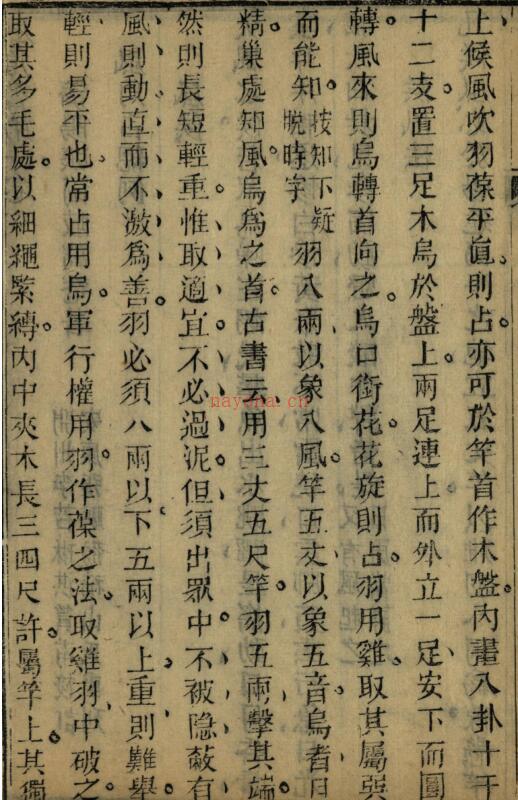 上候風吹羽葆平直則占。亦可於竿首作木盤。內畫八卦十干
十二支。置三足木烏於盤上。兩足連上而外立一足安下而圓
轉。風來則烏轉首向之。烏口銜花。花旋則占。羽用雞。取其屬巽
而能知。按知下疑脫時字羽八兩以象八風。竿五丈以象五音。烏者日
精。巢處知風。烏爲之首。古書云。用三丈五尺竿。羽五兩。擊其端。
然則長短輕重、惟取適宜、不必過泥、但須出眾中。不被隱蔽、有
風則動、直而不激爲善。羽必須八兩以下五兩以上、重則難舉、
輕則易平也。常占用烏。軍行權用羽。作葆之法。取雞羽中破之、
取其多毛處。以細繩緊縛。內中夾木長三四尺許。屬竿上。其獨
nayona.cn